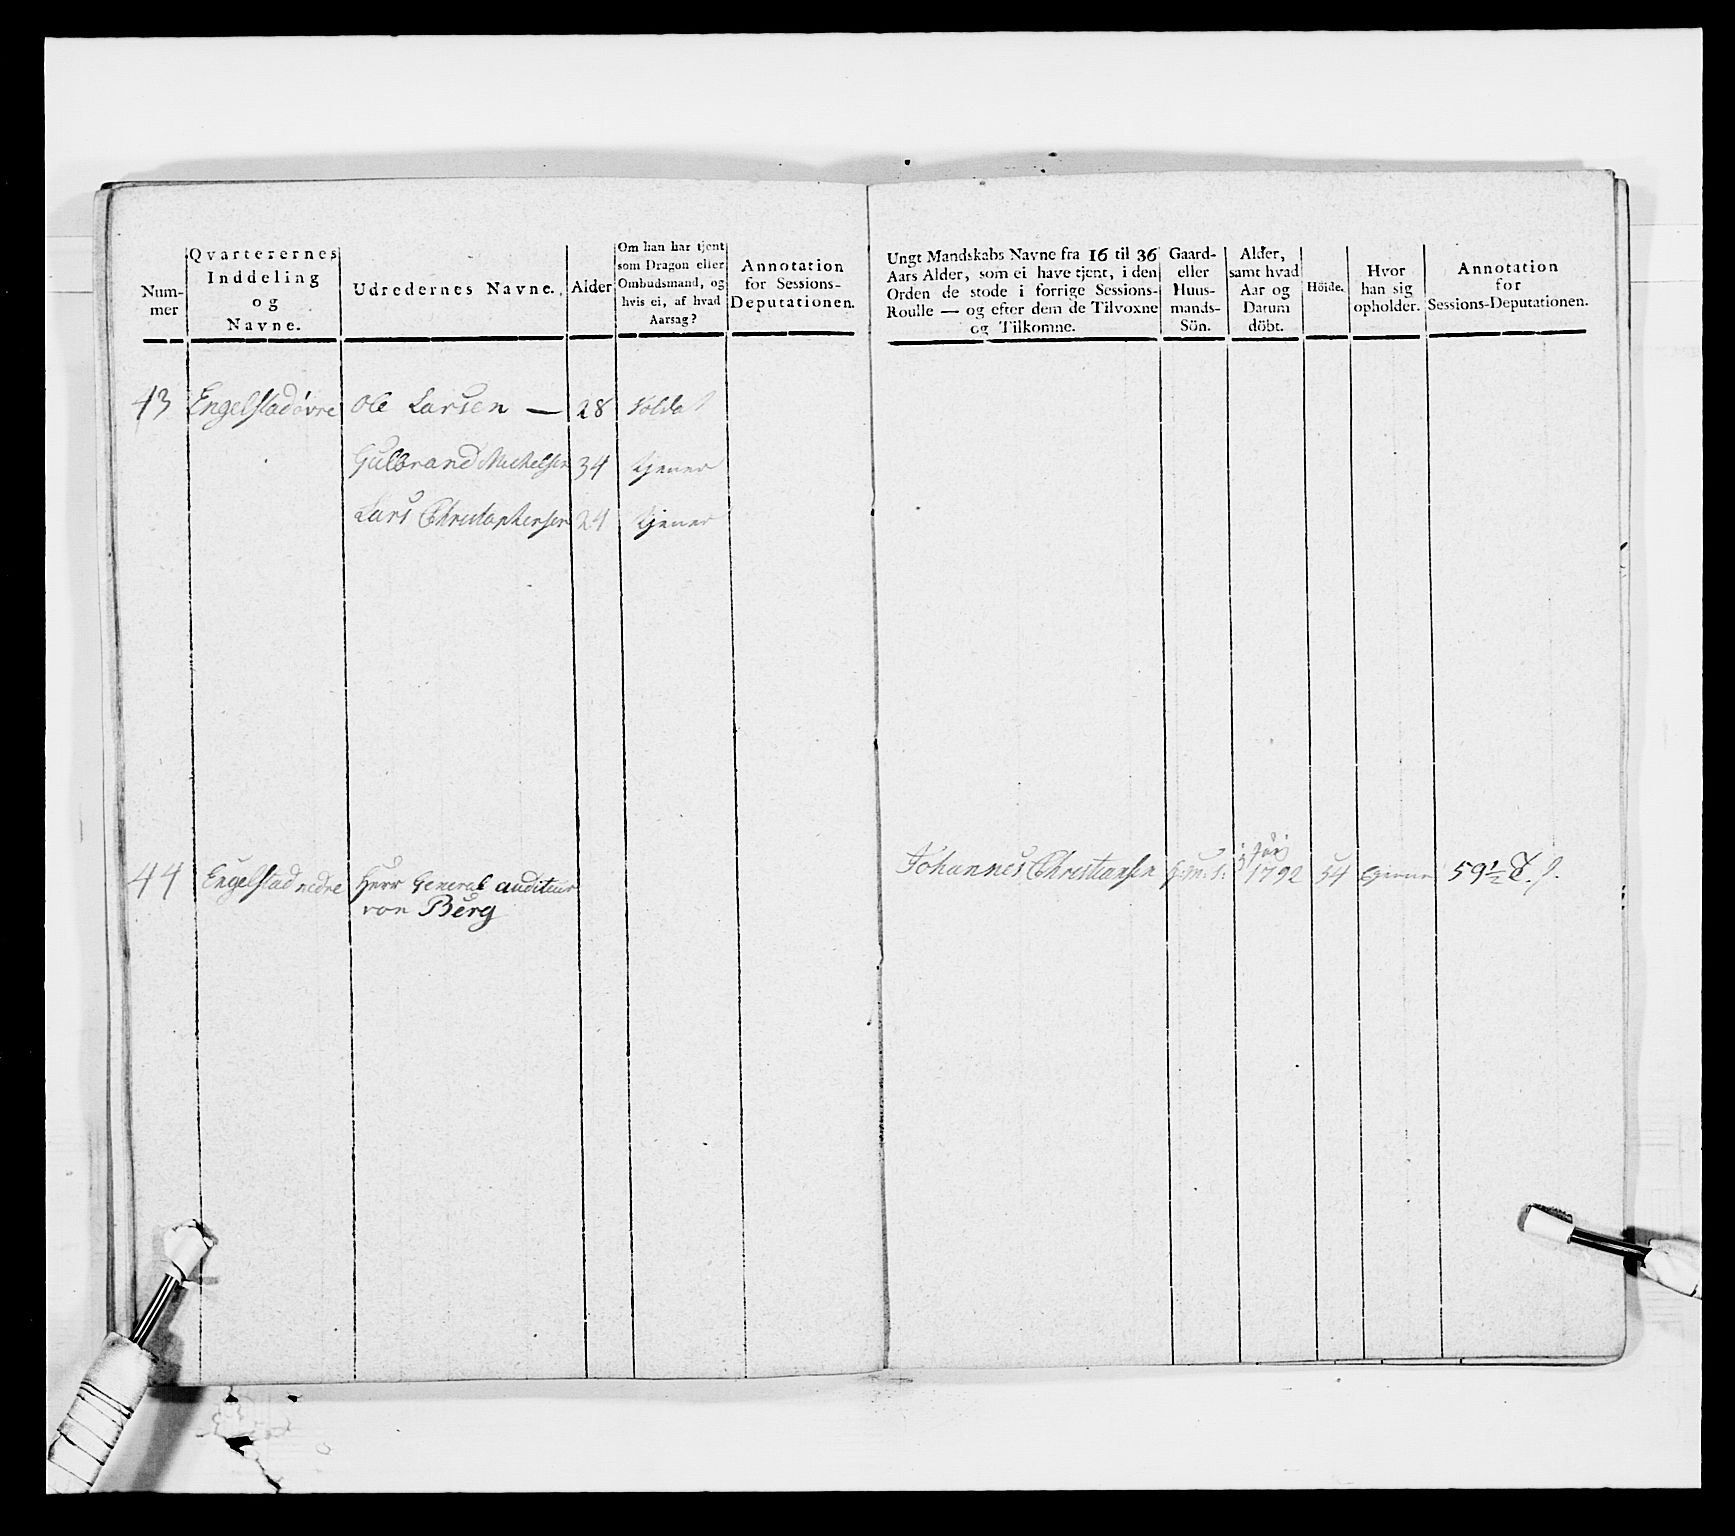 Num-
mer
Qvarterernes
Inddeling
og
Navne.
Udredernes Navne.
Alder
Om han har tjent
som Dragon eller
Ombudsmand, og
hvis ei, af hvad
Aarsag?
Annotation
for Sessions-
Deputationen.
Ungt Mandskabs Navne fra 16 til 36
Aars Alder, som ei have tjent, i den
Orden de stode i forrige Sessions-
Roulle — og efter dem de Tilvoxne
og Tilkomne.
Gaard-
eller
Huus-
mands-
Sön.
Alder,
samt hvad
Aar og
Datum
döbt.
Höide.
Hvor
han sig
opholder.
Annotation
for
Sessions-Deputationen.
43 Engelstad övre Ole Larsen — 28 Soldat
Gulbrand Michelsen 34 tjener
Lars Christophersen 24 tjener
44 Engelstad nedre Herr General auditeur
von Berg
Johannes Christiansen 1792 54 59½